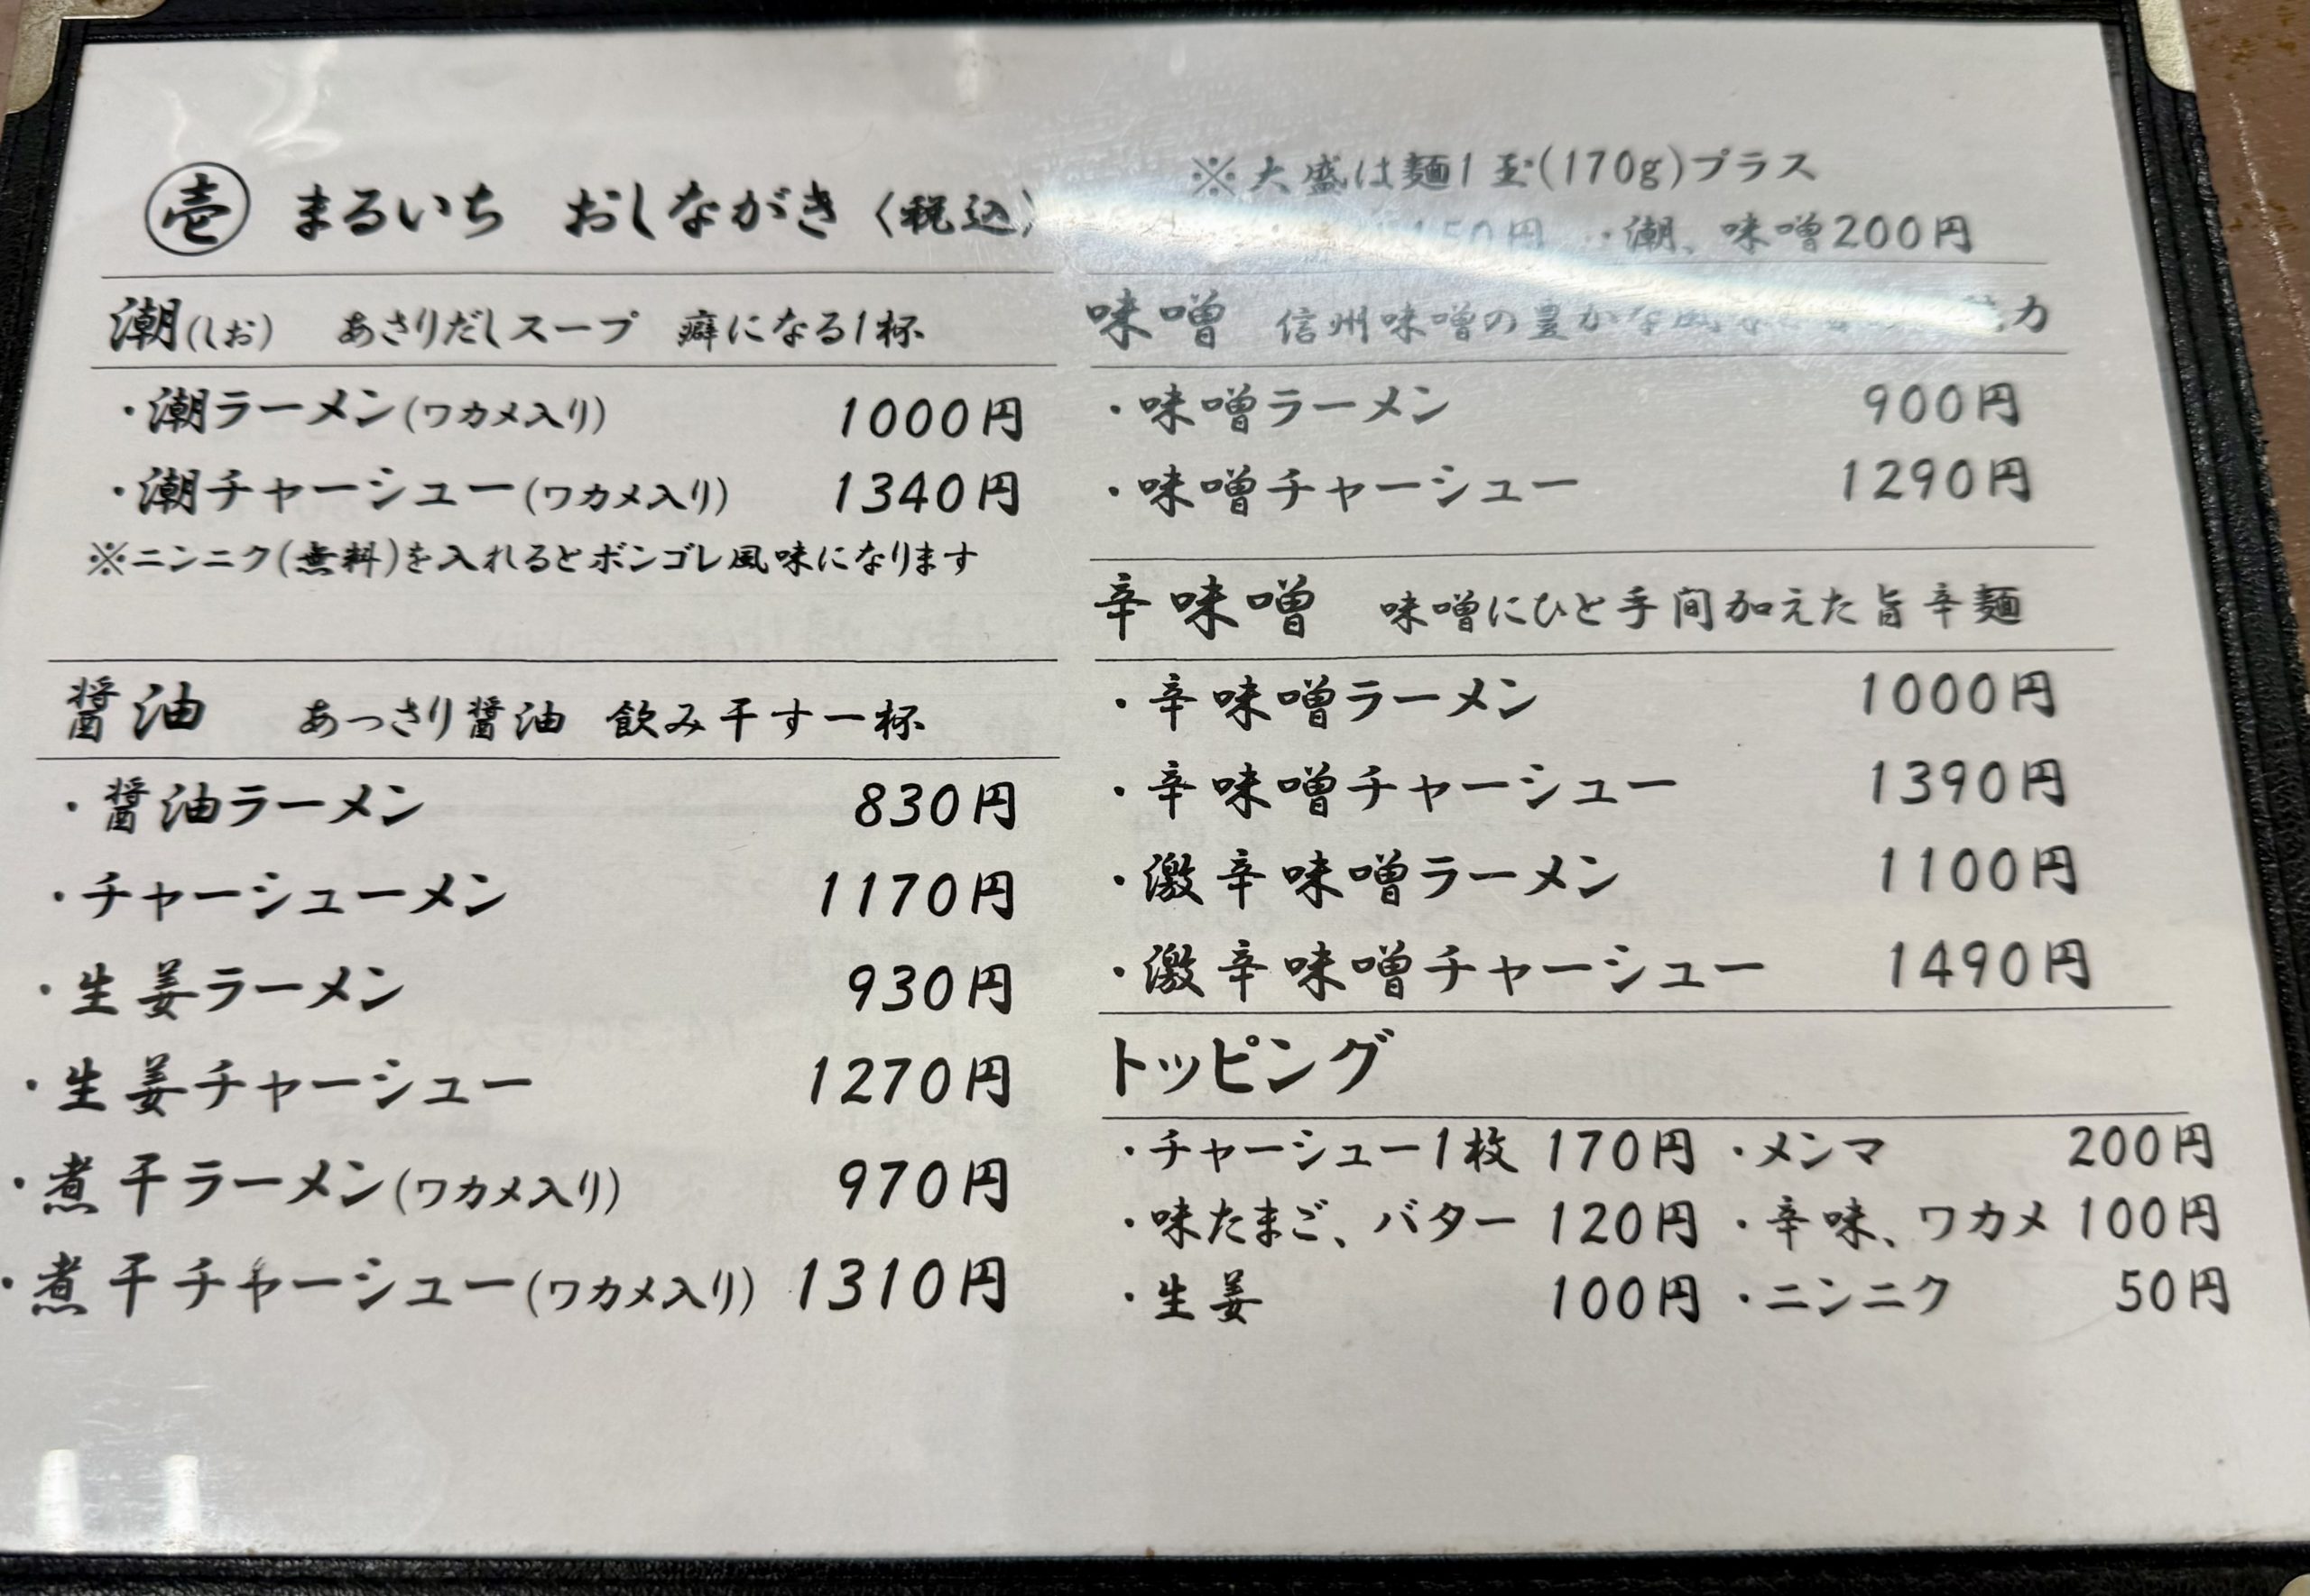 壱 まるいち おしながき〈税込〉
潮(しお) あさりだしスープ 癖になる1杯
・潮ラーメン(ワカメ入り) 1000円
・潮チャーシュー(ワカメ入り) 1340円
※ニンニク(無料)を入れるとボンゴレ風味になります
醤油 あっさり醤油 飲み干す一杯
・醤油ラーメン 830円
・チャーシューメン 1170円
・生姜ラーメン 930円
・生姜チャーシュー 1270円
・煮干ラーメン(ワカメ入り) 970円
・煮干チャーシュー(ワカメ入り) 1310円
※大盛は麺1玉(170g)プラス
150円 ・潮、味噌200円
味噌 信州味噌の豊かな風
・味噌ラーメン 900円
・味噌チャーシュー 1290円
辛味噌 味噌にひと手間加えた旨辛麺
・辛味噌ラーメン 1000円
・辛味噌チャーシュー 1390円
・激辛味噌ラーメン 1100円
・激辛味噌チャーシュー 1490円
トッピング
・チャーシュー1枚 170円 ・メンマ 200円
・味たまご、バター 120円 ・辛味、ワカメ 100円
・生姜 100円 ・ニンニク 50円